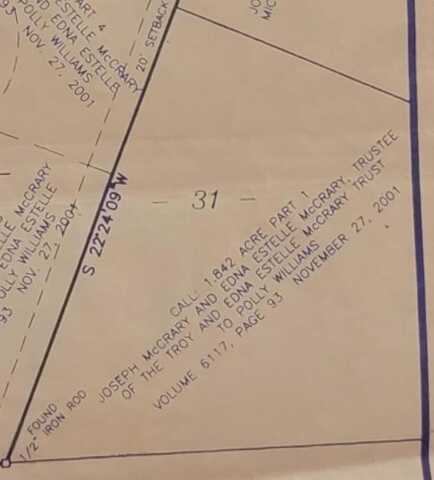 PART 4
ESTELLE McCRARY
ND EDNA ESTELLE
POLLY WILLIAMS
93 NOV. 27, 2001
20' SETBACK
JO
MIC
- 31 -
S 22°24'09" W
ELLE McCRARY
EDNA ESTELLE
OLLY WILLIAMS
93 NOV 27, 2001
CALL: 1.842 ACRE PART 1
JOSEPH McCRARY AND EDNA ESTELLE McCRARY, TRUSTEE
OF THE TROY AND EDNA ESTELLE McCRARY TRUST
TO POLLY WILLIAMS
VOLUME 6117, PAGE 93 NOVEMBER 27, 2001
FOUND
1/2" IRON ROD